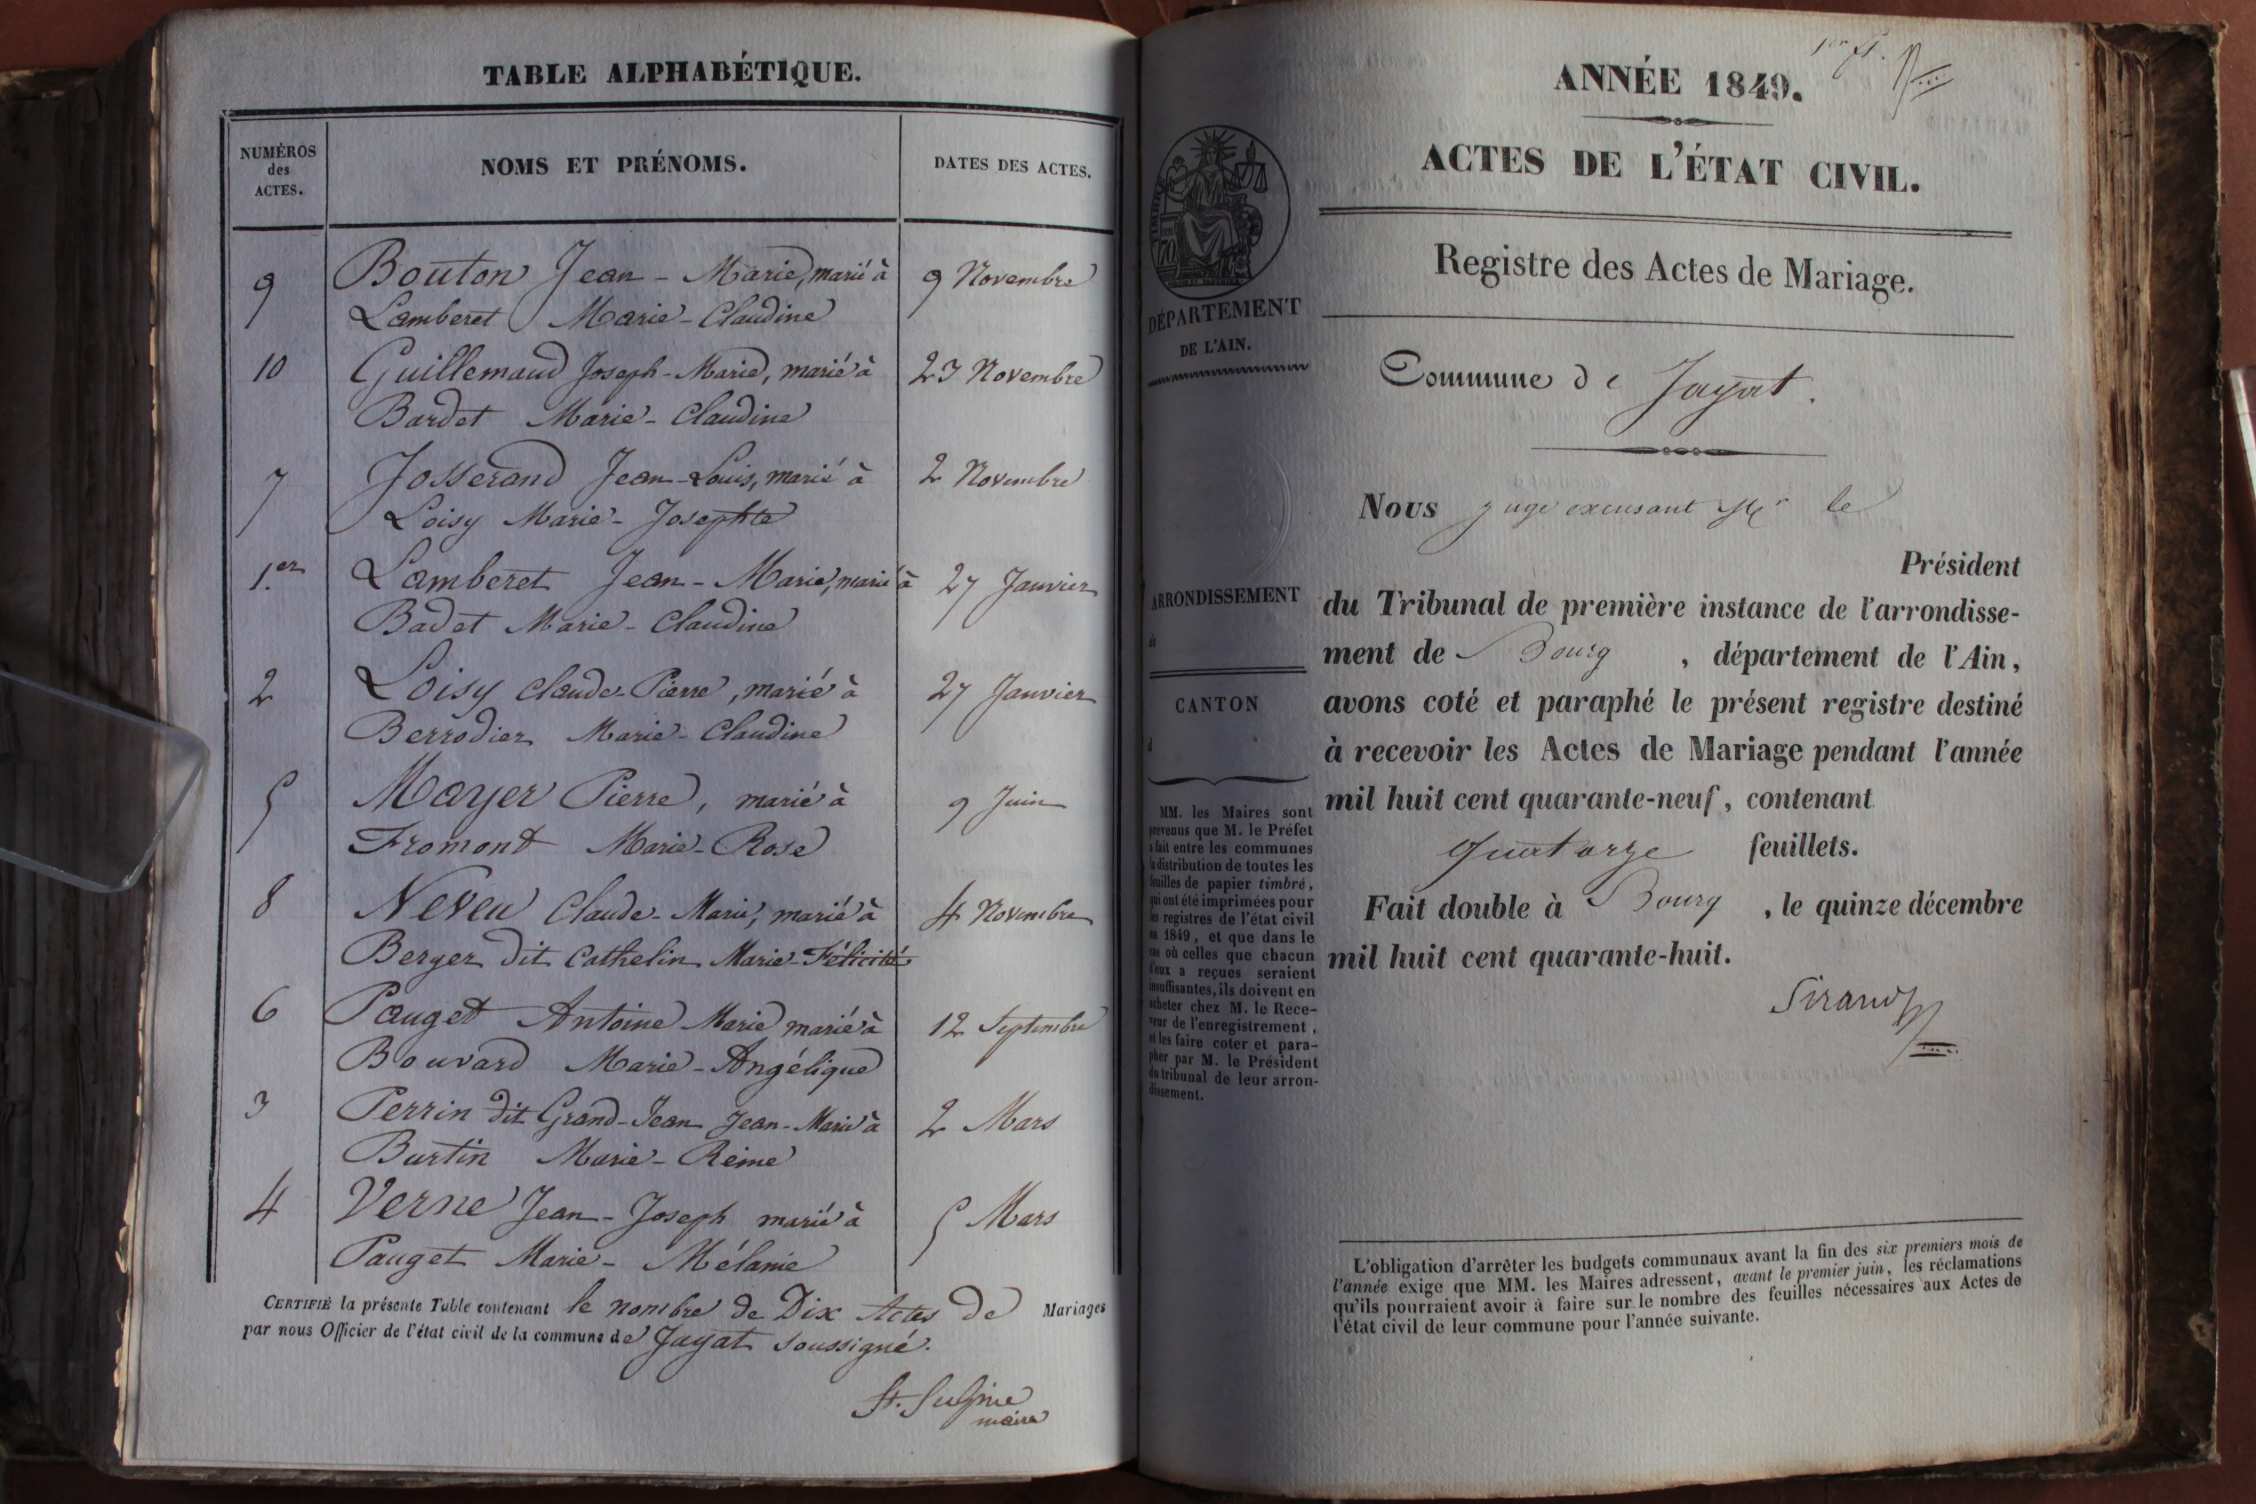 TABLE ALPHABÉTIQUE.
NUMÉROS
des
ACTES.
NOMS ET PRÉNOMS.
DATES DES ACTES.
9 Bouton Jean-Marie, marié à 9 Novembre
Lamberet Marie-Claudine
10 Guillemaud Joseph-Marie, marié à 23 Novembre
Bardet Marie-Claudine
7 Josserand Jean-Louis, marié à 2 Novembre
Loisy Marie-Josephte
1.er Lamberet Jean-Marie, marié à 27 Janvier
Badet Marie-Claudine
2 Loisy Claude-Pierre, marié à 27 Janvier
Berrodier Marie-Claudine
5 Mayer Pierre, marié à 9 Juin
Fromont Marie-Rose
8 Neveu Claude-Marie, marié à 4 Novembre
Berger dit Cathelin Marie-Félicité
6 Pauget Antoine Marie marié à 12 Septembre
Bouvard Marie-Angélique
3 Perrin dit Grand-Jean Jean-Marie à 2 Mars
Burtin Marie-Reine
4 Verne Jean-Joseph marié à 5 Mars
Pauget Marie-Mélanie
CERTIFIÉ la présente Table contenant le nombre de Dix Actes de Mariages
par nous Officier de l'état civil de la commune de Jayat soussigné.
maire
1er f.
ANNÉE 1849.
ACTES DE L'ÉTAT CIVIL.
Registre des Actes de Mariage.
DÉPARTEMENT
DE L'AIN.
Commune de Jayat.
Nous juge excusant Mr le
Président
ARRONDISSEMENT
de
du Tribunal de première instance de l'arrondisse-
ment de Bourg, département de l'Ain,
avons coté et paraphé le présent registre destiné
à recevoir les Actes de Mariage pendant l'année
mil huit cent quarante-neuf, contenant
quatorze feuillets.
Fait double à Bourg, le quinze décembre
mil huit cent quarante-huit.
Sirand
CANTON
d
MM. les Maires sont
prévenus que M. le Préfet
a fait entre les communes
la distribution de toutes les
feuilles de papier timbré,
qui ont été imprimées pour
les registres de l'état civil
en 1849, et que dans le
cas où celles que chacun
d'eux a reçues seraient
insuffisantes, ils doivent en
acheter chez M. le Rece-
veur de l'enregistrement,
et les faire coter et para-
pher par M. le Président
du tribunal de leur arron-
dissement.
L'obligation d'arrêter les budgets communaux avant la fin des six premiers mois de
l'année exige que MM. les Maires adressent, avant le premier juin, les réclamations
qu'ils pourraient avoir à faire sur le nombre des feuilles nécessaires aux Actes de
l'état civil de leur commune pour l'année suivante.